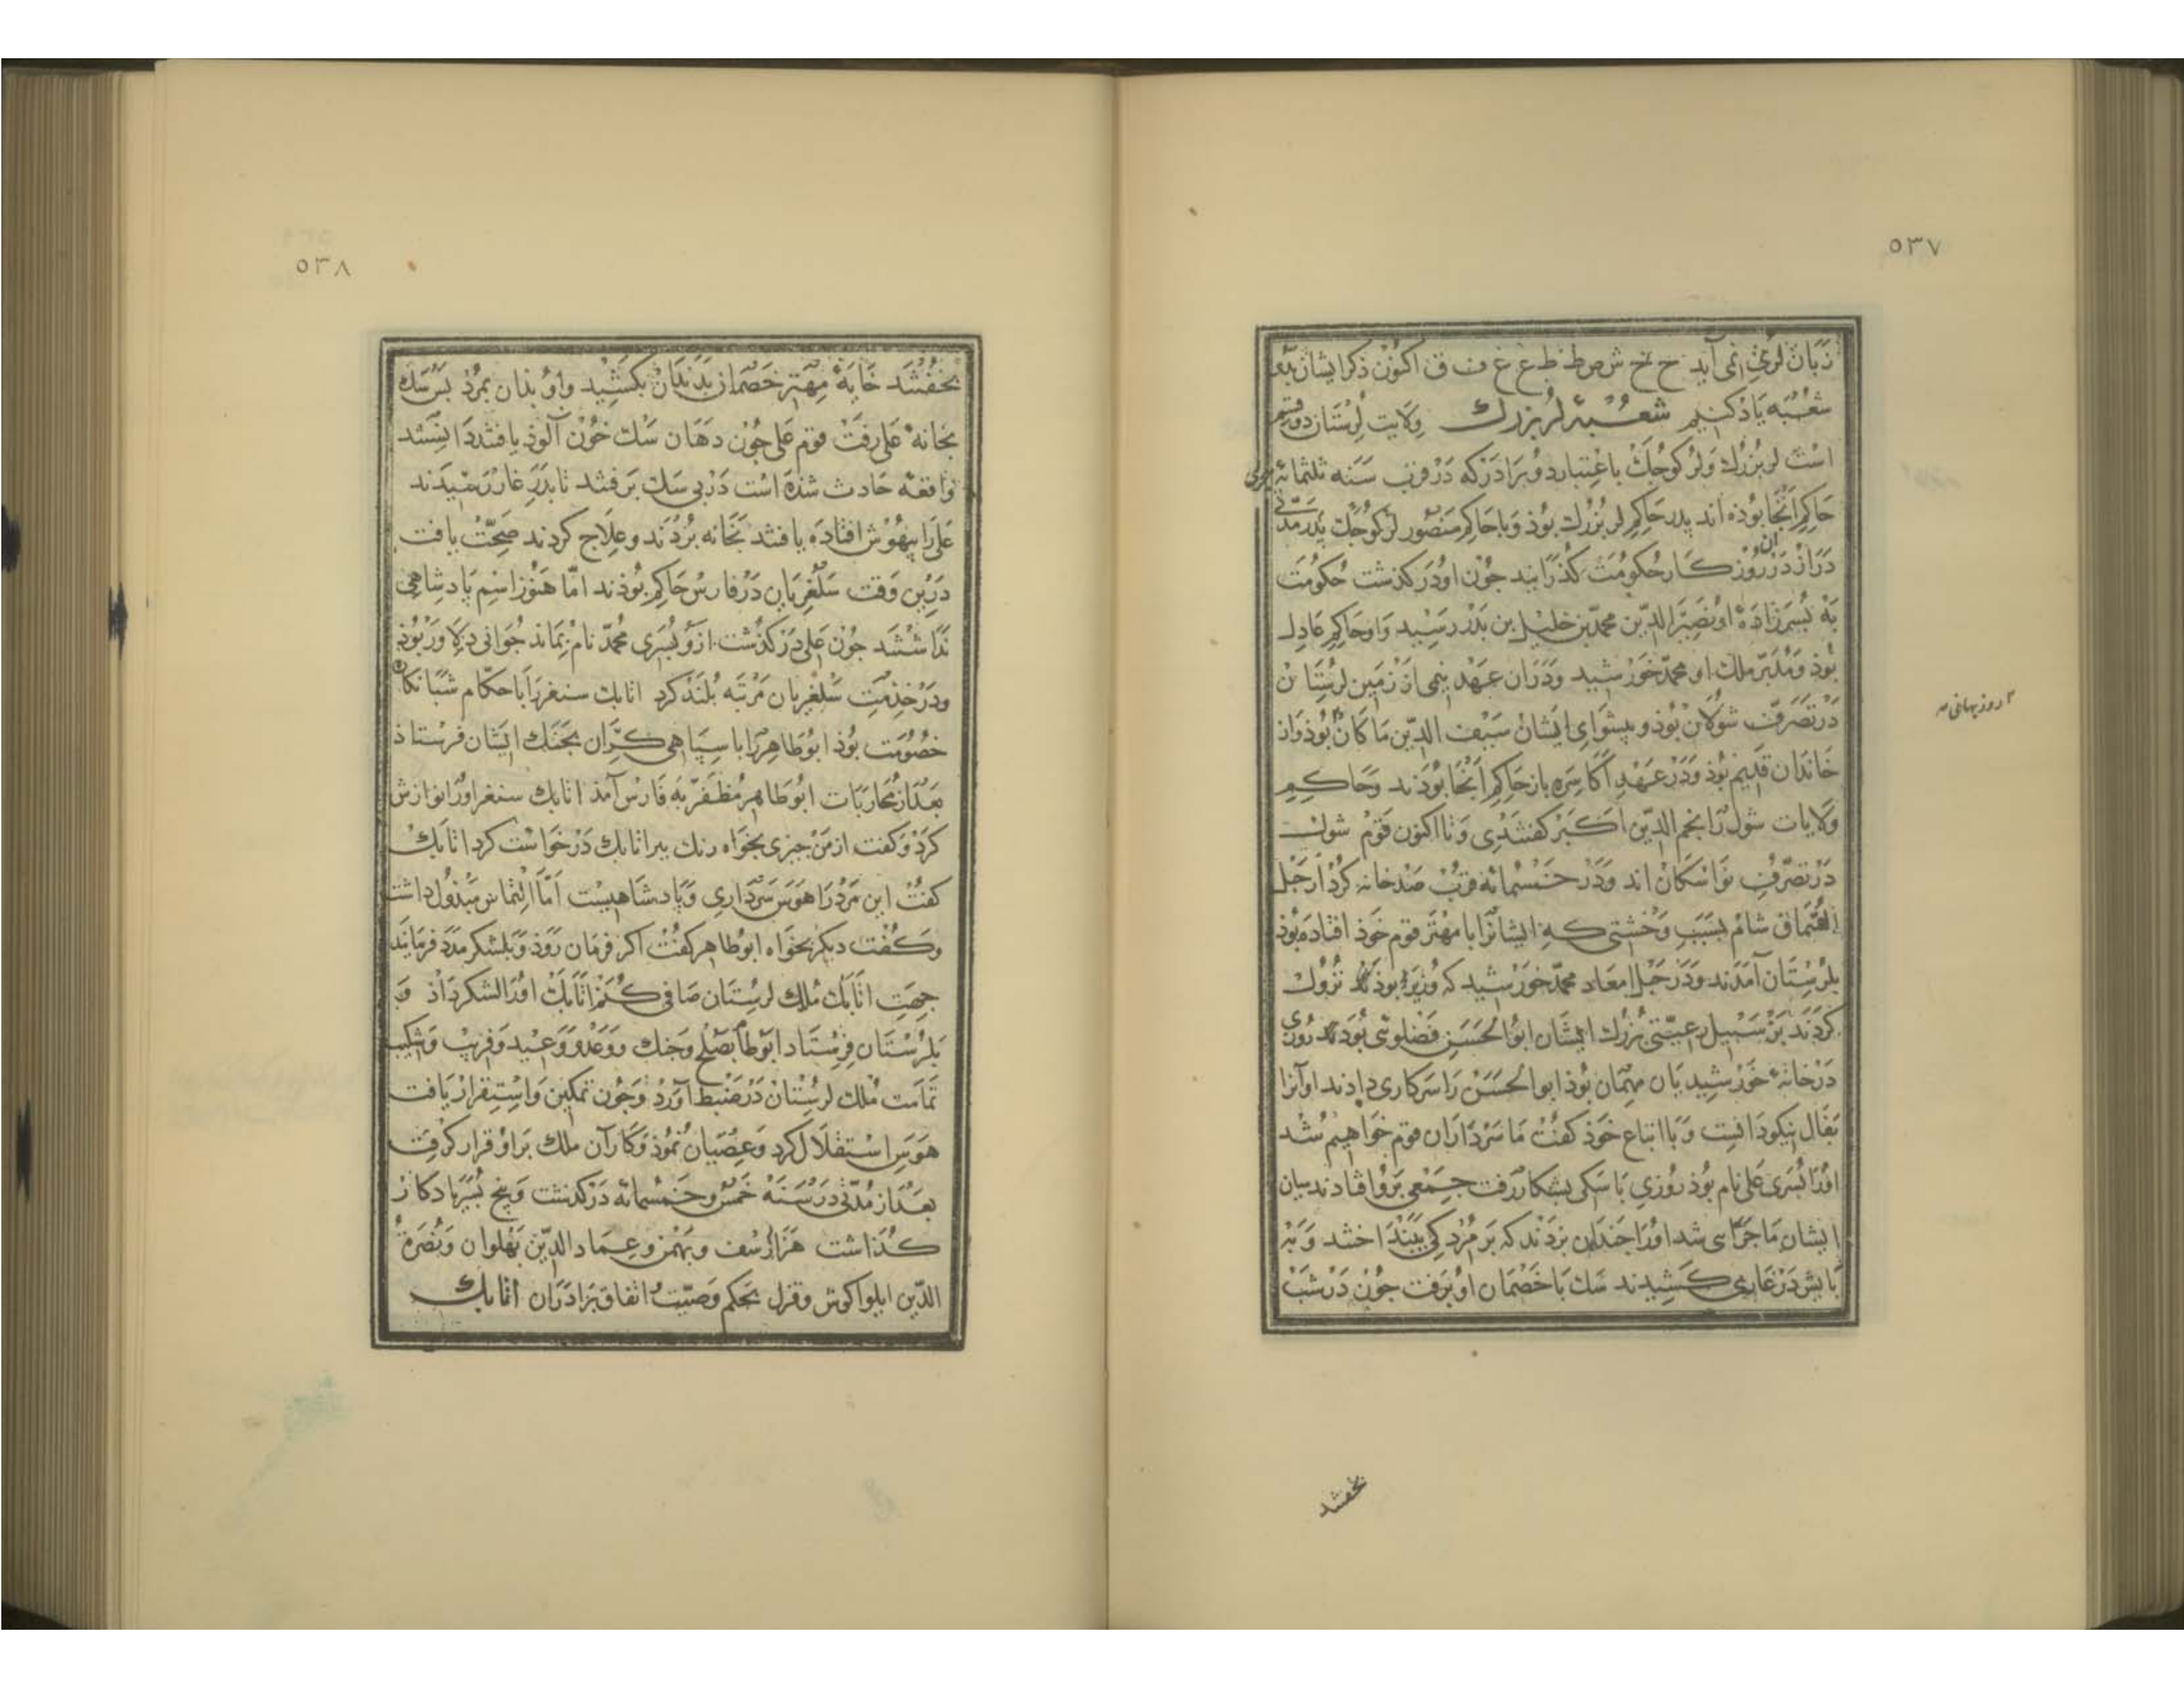 ۵۳۷
زبان لری نمی آید ح خ ش ص ط ظ ع غ ف ق اکنون ذکر ایشان بدو
شعبه یاد کنیم شعبهٔ لر بزرك ولایت لرستان دو قسم
است لر بزرك ولر کوجك باعتبار دو برادر که در قرب سنه ثلثمائه هجری
حاکم آنجا بوده اند بدر حاکم لر بزرك بوذ وبا حاکم منصور لر کوجك بدر مدتی
دراز در آن روز کار حکومت کذرانید جون او در کذشت حکومت
به بسر زاده او نصیر الدین محمد بن خلیل بن بدر رسید واو حاکم عادل
بوذ ومدبر ملك او محمد خورشید ودران عهد نیمی از زمین لرستان
در تصرف شولان بوذ وبیشوای ایشان سیف الدین ماکان بوذ واز
۲ روزبهانی
خاندان قدیم بوذ ودر عهد اکاسره باز حاکم آنجا بودند وحاکم
ولایات شول را نجم الدین اکبر کفتندی وتا اکنون قوم شول
در تصرف نواسکان اند ودر خمسمائه قرب صد خانه کرد از جبل
السماق شام بسبب وحشتی که ایشانرا با مهتر قوم خوذ افتاده بوذ
بلرستان آمدند ودر خیل احفاد محمد خورشید که وزیر بوذند نزول
کردند بر سبیل رعیتی بزرك ایشان ابو الحسن فضلوی بود روزی
در خانهٔ خورشیدیان مهمان بوذ ابو الحسن را سر کاری دادند او آنرا
بفال نیکو دانست وبا اتباع خوذ کفت ما سرداران قوم خواهیم شد
اورا بسری علی نام بوذ روزی با سکی بشکار رفت جمعی برو افتادند میان
ایشان ماجرای شد اورا جندان بزدند که بر مردکی ببنداختند وبه
بایش در غاری کشیدند سك با خصمان او برفت جون در شب
بخفتند
۵۳۸
بخفتند خایهٔ مهتر خصمان بدندان بکشید واو بذان بمرد بس سك
بخانهٔ علی رفت قوم علی جون دهان سك خون آلوذ یافتند دانستند
واقعه حادث شذه است در بی سك برفتند تا بدر غار رسیدند
علی را بیهوش افتاده یافتند بخانه بردند وعلاج کردند صحت یافت
درین وقت سلغریان در فارس حاکم بوذند اما هنوز اسم بادشاهی
نداشتند جون علی در کذشت ازو بسری محمد نام بماند جوانی دلاور بوذ
ودر خدمت سلغریان مرتبه بلند کرد اتابك سنغر را با حکام شبانکاره
خصومت بوذ ابو طاهر را با سپاهی کران بجنك ایشان فرستاذ
بعد از محاربات ابو طاهر مظفر به فارس آمذ اتابك سنغر اورا نوازش
کرد وکفت از من جیزی بخواه در خواست کرد اتابك
کفت این مرد را هوس سرداری وبادشاهیست اما التماس مبذول داشت
وکفت دیکر بخواه ابو طاهر کفت اکر فرمان روذ وبلشکر مدد فرمایند
جهت اتابك ملك لرستان صافی کنم اتابك اورا لشکر داذ و
بلرستان فرستاد ابو طا بصلح وجنك ووعد ووعید وفریب وشکیب
تمامت ملك لرستان در ضبط آورد وجون تمکین واستقرار یافت
هوس استقلال کرد وعصیان نموذ وکار آن ملك براو قرار کرفت
بعد از مدتی در سنه خمس وخمسمائه در کذشت وپنج بسر یادکار
کذاشت هزارسف وبهمن وعماد الدین بهلوان ونصرة
الدین ایلواکوش وقزل بحکم وصیت اتفاق برادران اتابك